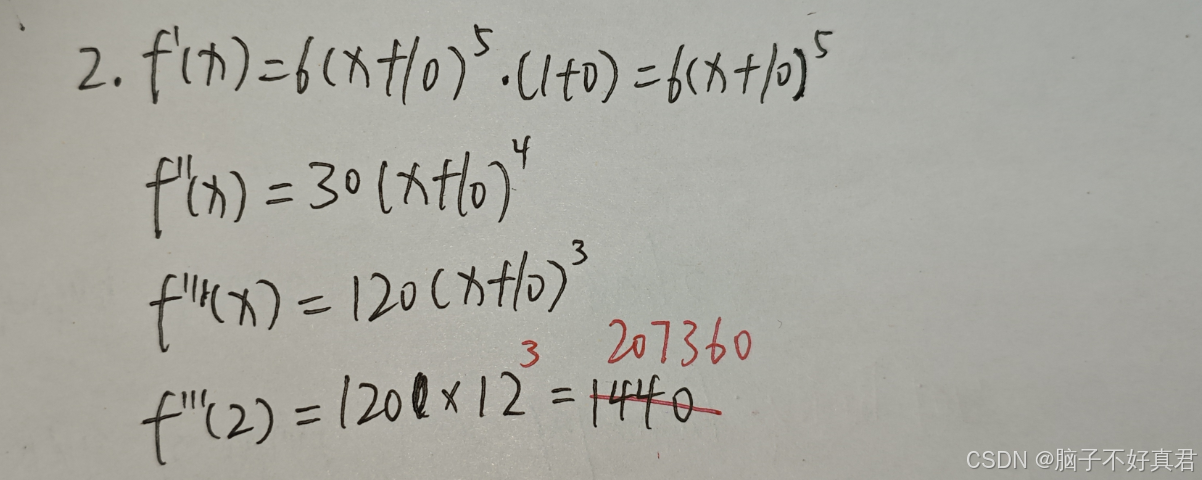 2. f'(x)=6(x+10)^5·(1+0)=6(x+10)^5
f''(x)=30(x+10)^4
f'''(x)=120(x+10)^3
207360
f'''(2)=120×12^3=1440
CSDN @脑子不好真君